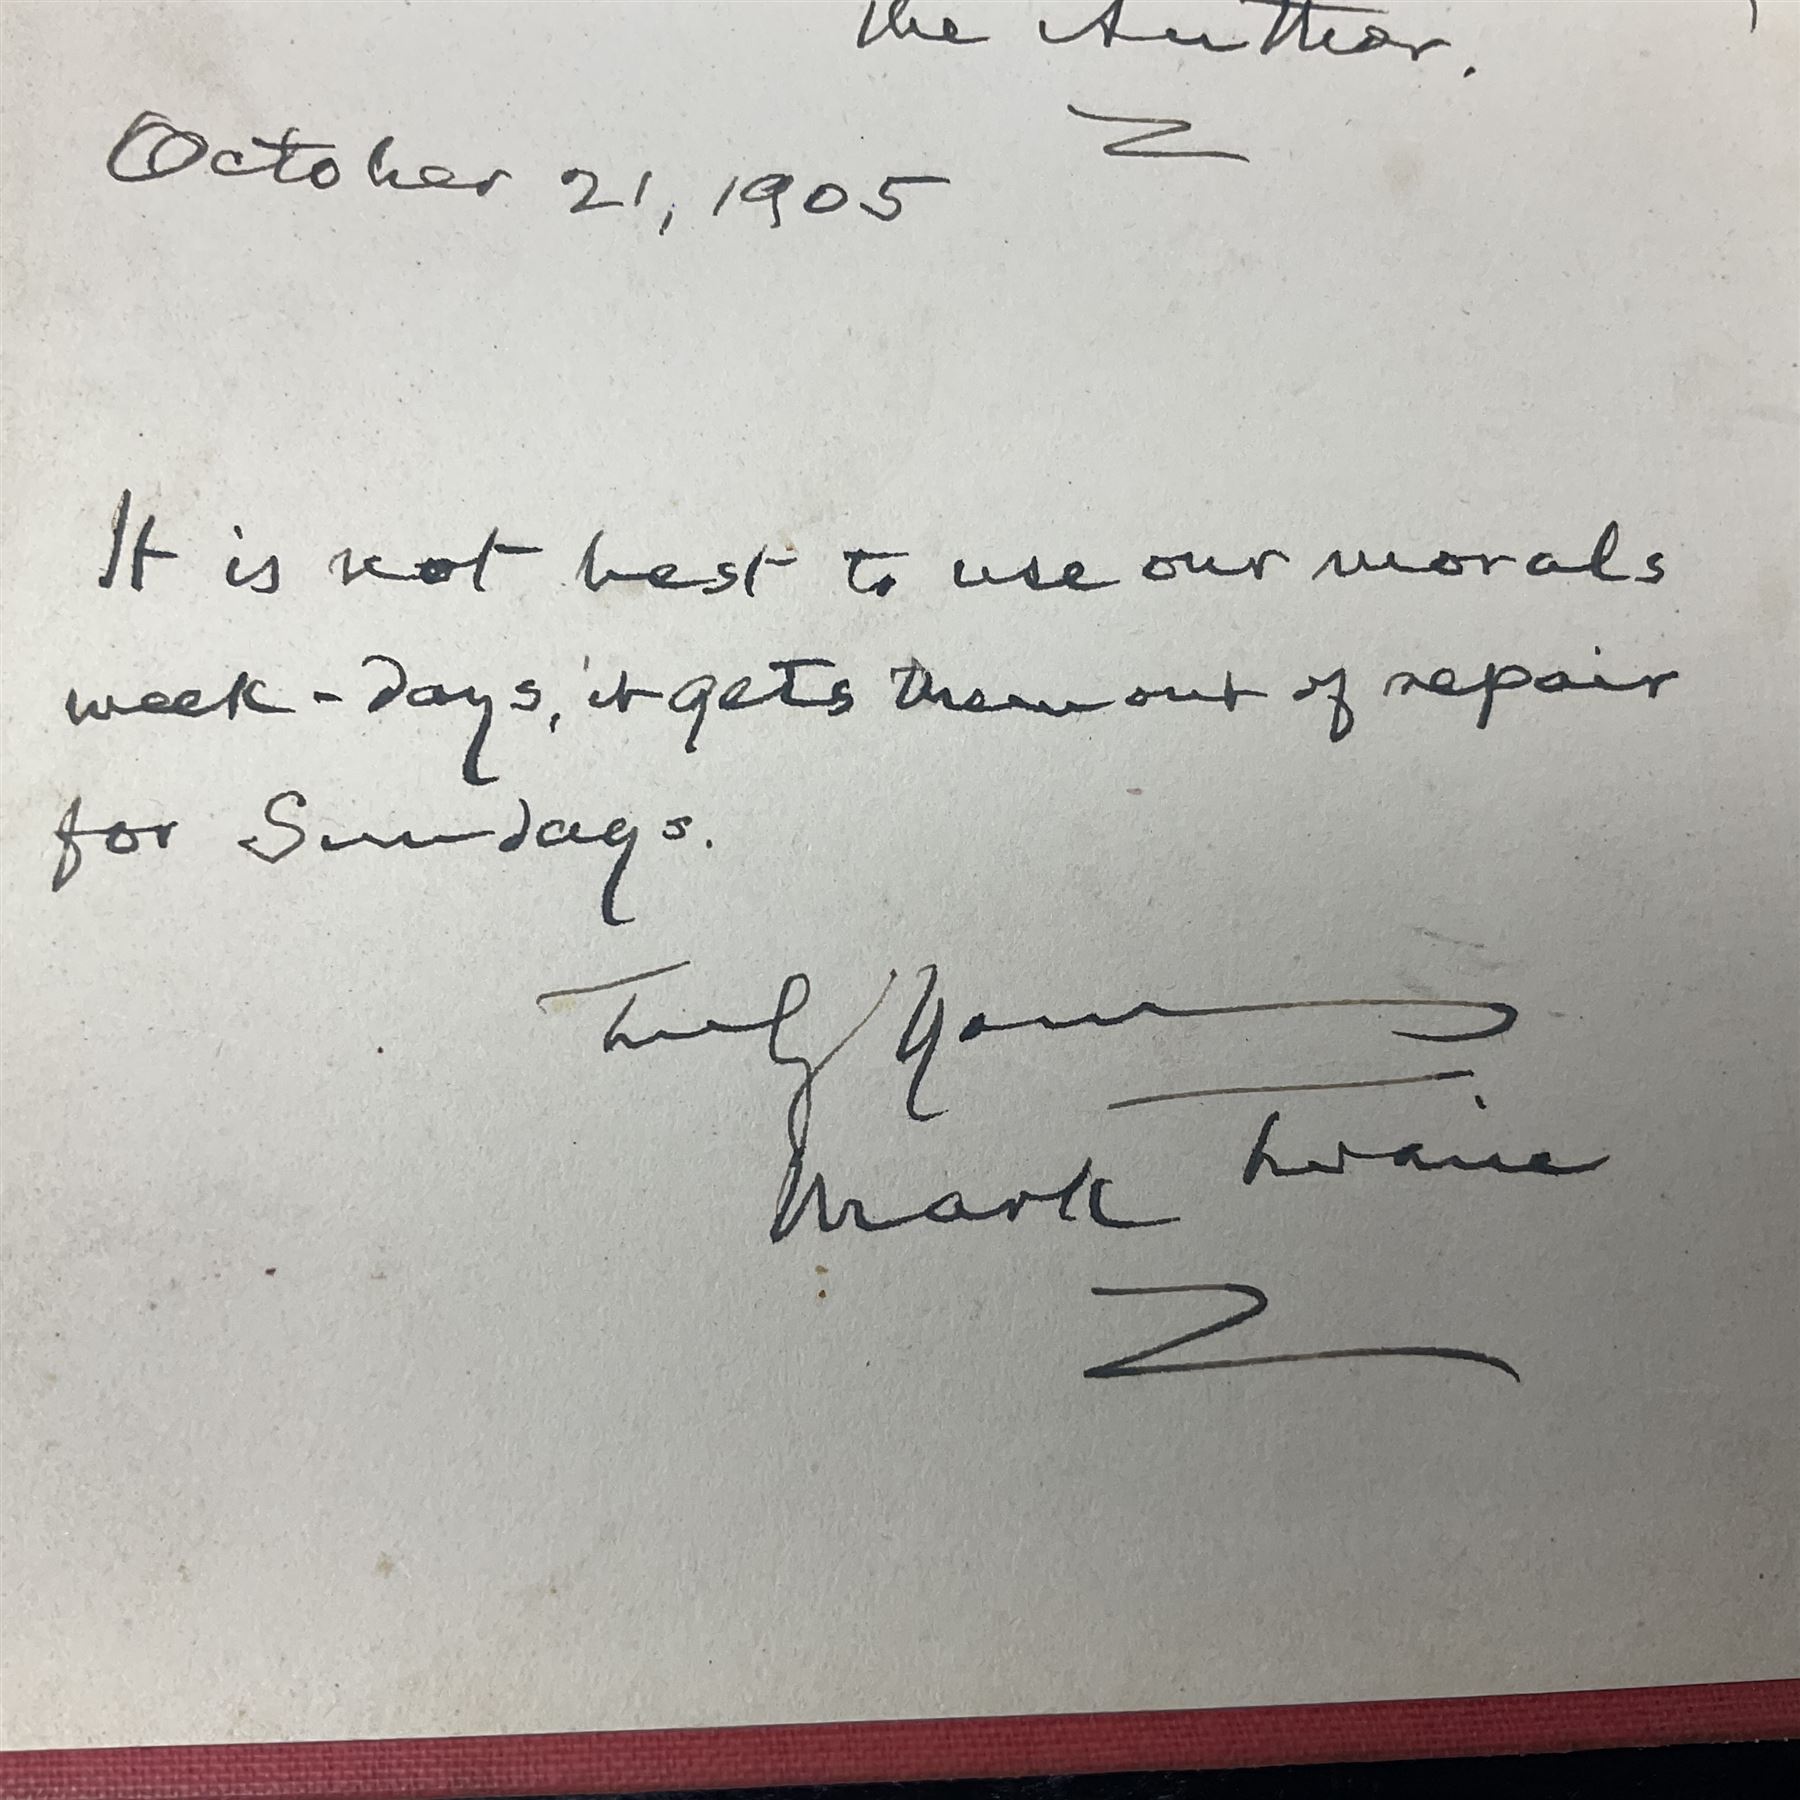 the Author.
October 21, 1905
It is not best to use our morals
week-days, it gets them out of repair
for Sundays.
Truly Yours
Mark Twain